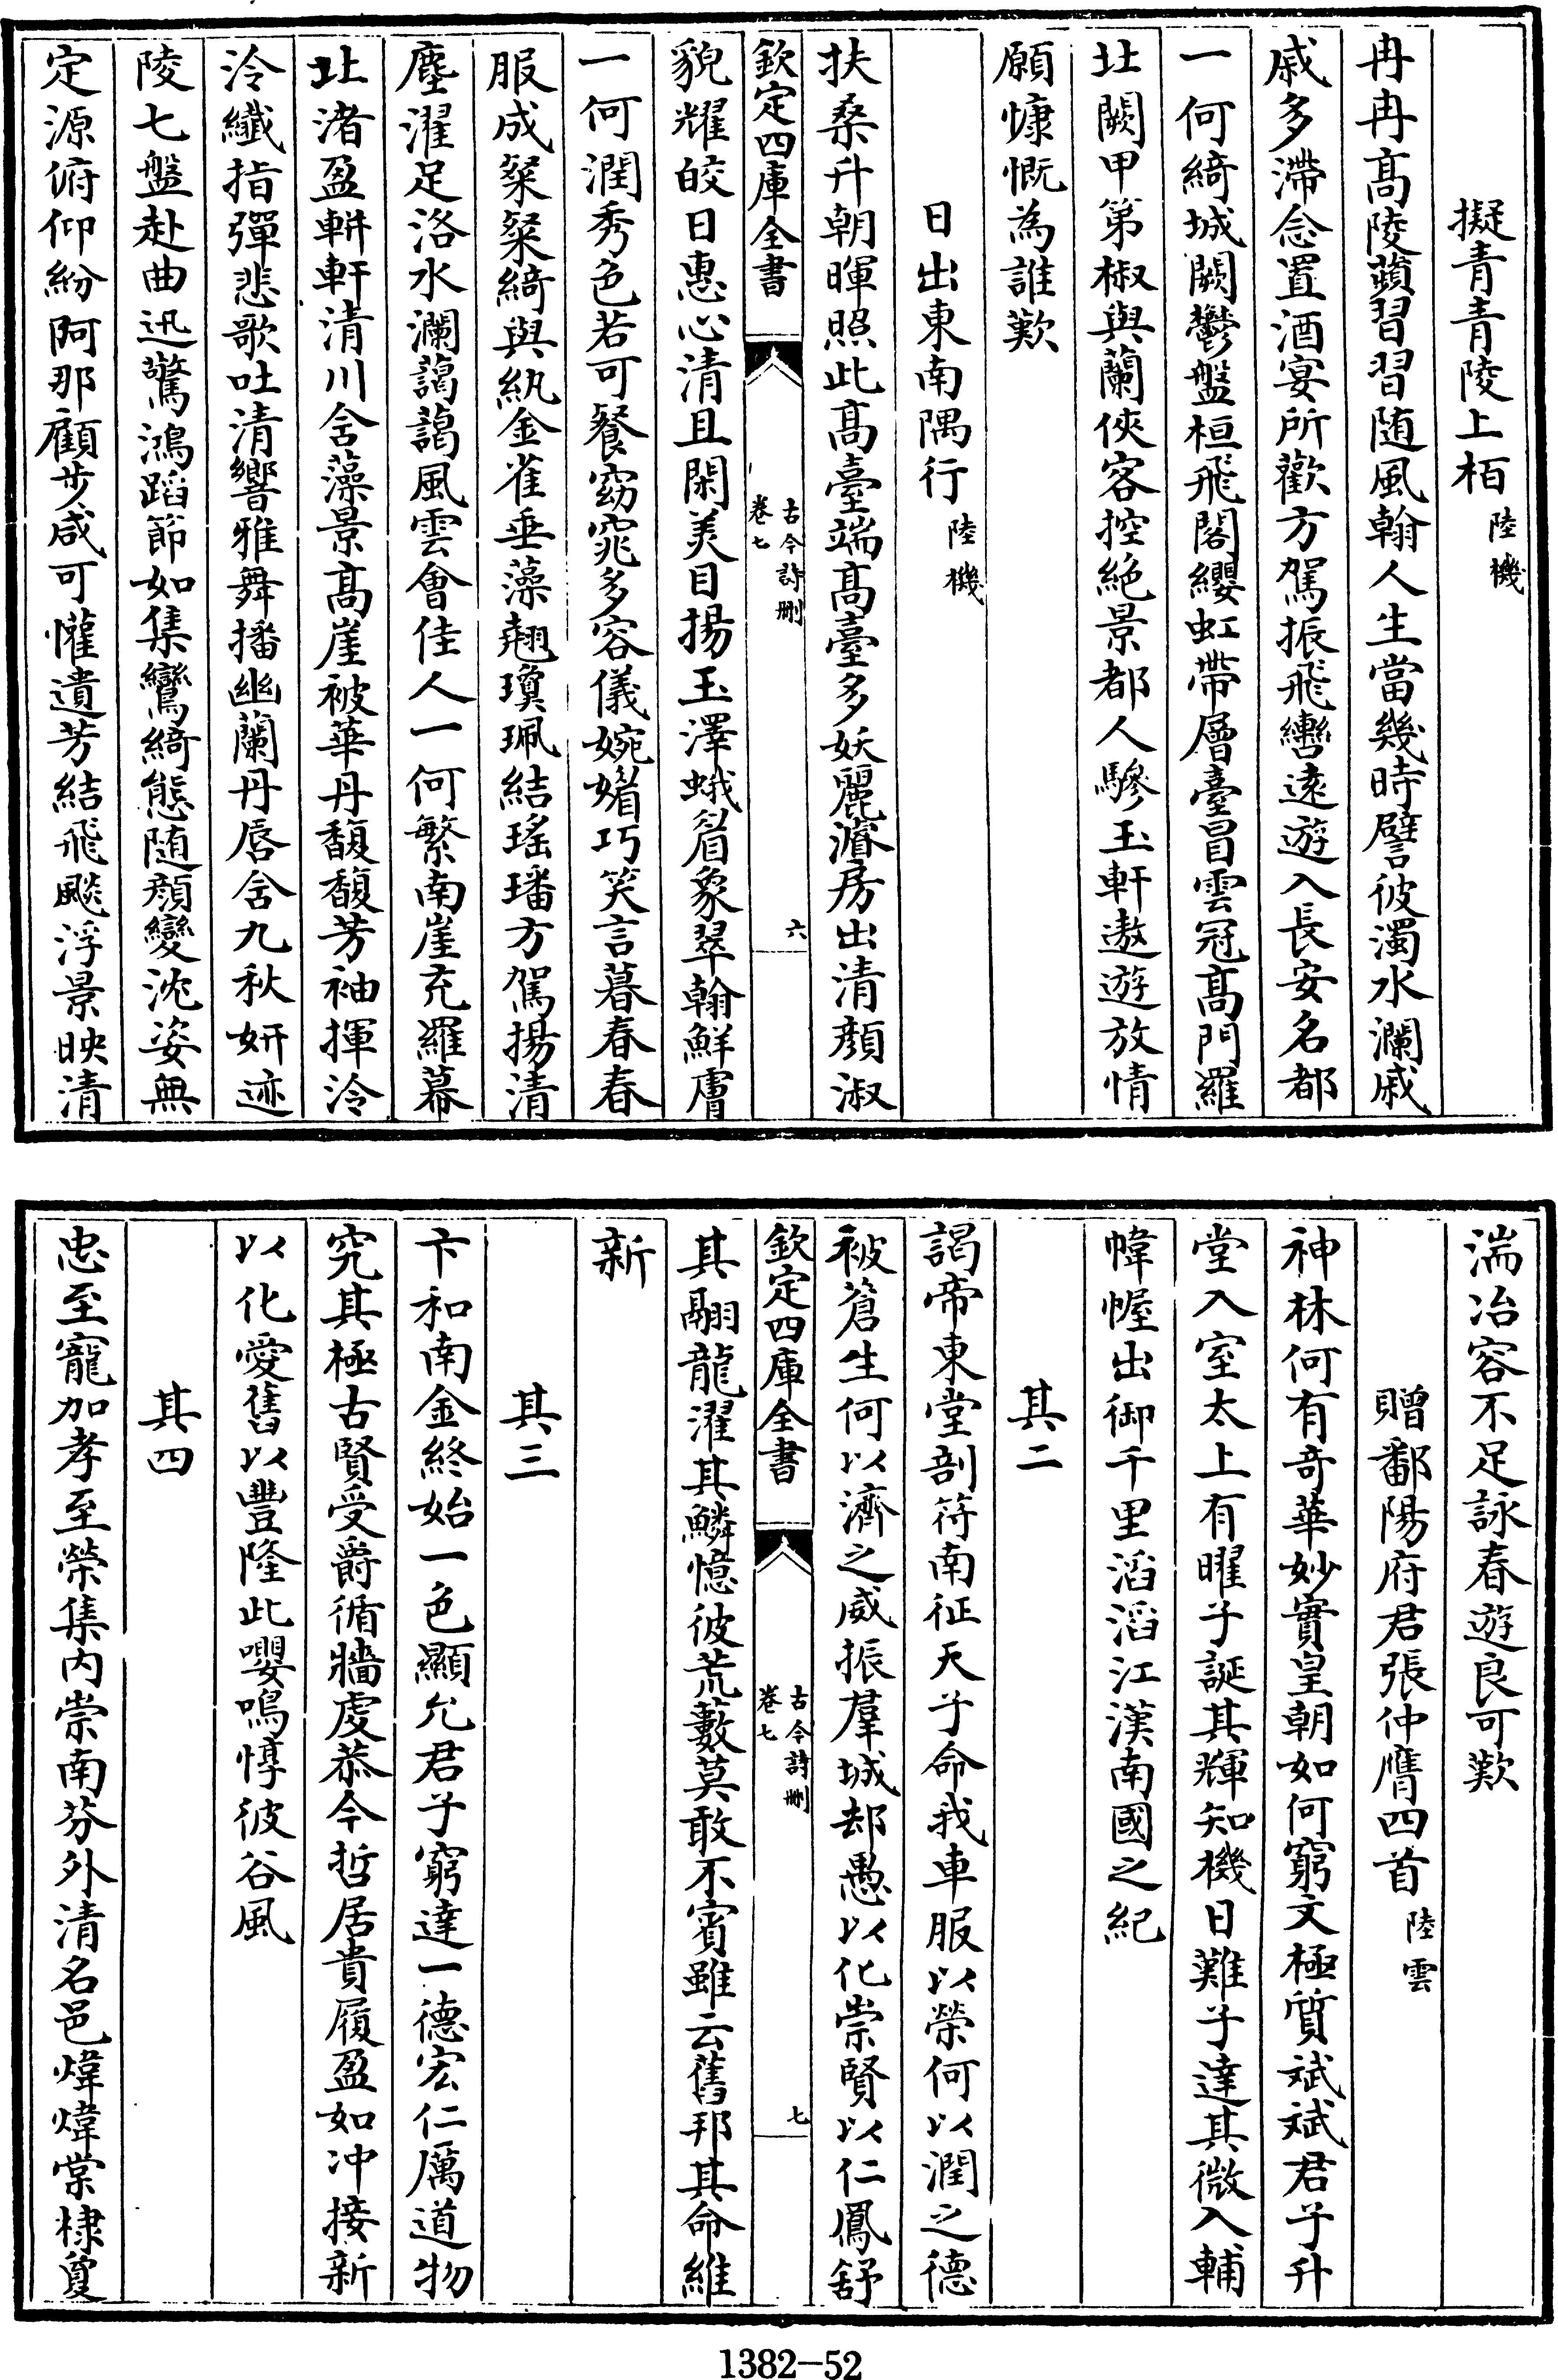 擬青青陵上栢陸機
冉冉髙陵蘋習習随風翰人生當幾時譬彼濁水瀾戚
戚多滯念置酒宴所歡方駕振飛轡逺遊入長安名都
一何綺城闕鬱盤桓飛閣纓虹帶層臺冒雲冠髙門羅
北闕甲第椒與蘭俠客控絶景都人驂玉軒遨遊放情
願慷慨為誰歎
日出東南隅行陸機
扶桑升朝暉照此髙臺端髙臺多妖麗濬房出清顔淑
欽定四庫全書
古今詩刪
卷七
六
貌耀皎日惠心清且閑美目揚玉澤蛾眉象翠翰鮮膚
一何潤秀色若可餐窈窕多容儀婉媚巧笑言暮春春
服成粲粲綺與紈金雀垂藻翹瓊珮結瑤璠方駕揚清
塵濯足洛水瀾藹藹風雲會佳人一何繁南崖充羅幕
北渚盈軿軒清川含藻景髙崖被華丹馥馥芳袖揮泠
泠纖指彈悲歌吐清響雅舞播幽蘭丹唇含九秋妍迹
陵七盤赴曲迅驚鴻蹈節如集鸞綺態随顔變沈姿無
定源俯仰紛阿那顧步咸可懽遺芳結飛飈浮景映清
湍冶容不足詠春遊良可歎
贈鄱陽府君張仲膺四首陸雲
神林何有奇華妙實皇朝如何窮文極質斌斌君子升
堂入室太上有曜子誕其輝知機日難子達其微入輔
幃幄出御千里滔滔江漢南國之紀
其二
謁帝東堂剖符南征天子命我車服以榮何以潤之德
被蒼生何以濟之威振羣城却愚以化崇賢以仁鳳舒
欽定四庫全書
古今詩刪
卷七
七
其翮龍濯其鱗憶彼荒藪莫敢不賓雖云舊邦其命維
新
其三
卞和南金終始一色顯允君子窮達一德宏仁厲道物
究其極古賢受爵循牆虔恭今哲居貴履盈如冲接新
以化愛舊以豐隆此嚶鳴惇彼谷風
其四
忠至寵加孝至榮集内崇南芬外清名邑煒煒棠棣敻
1382-52